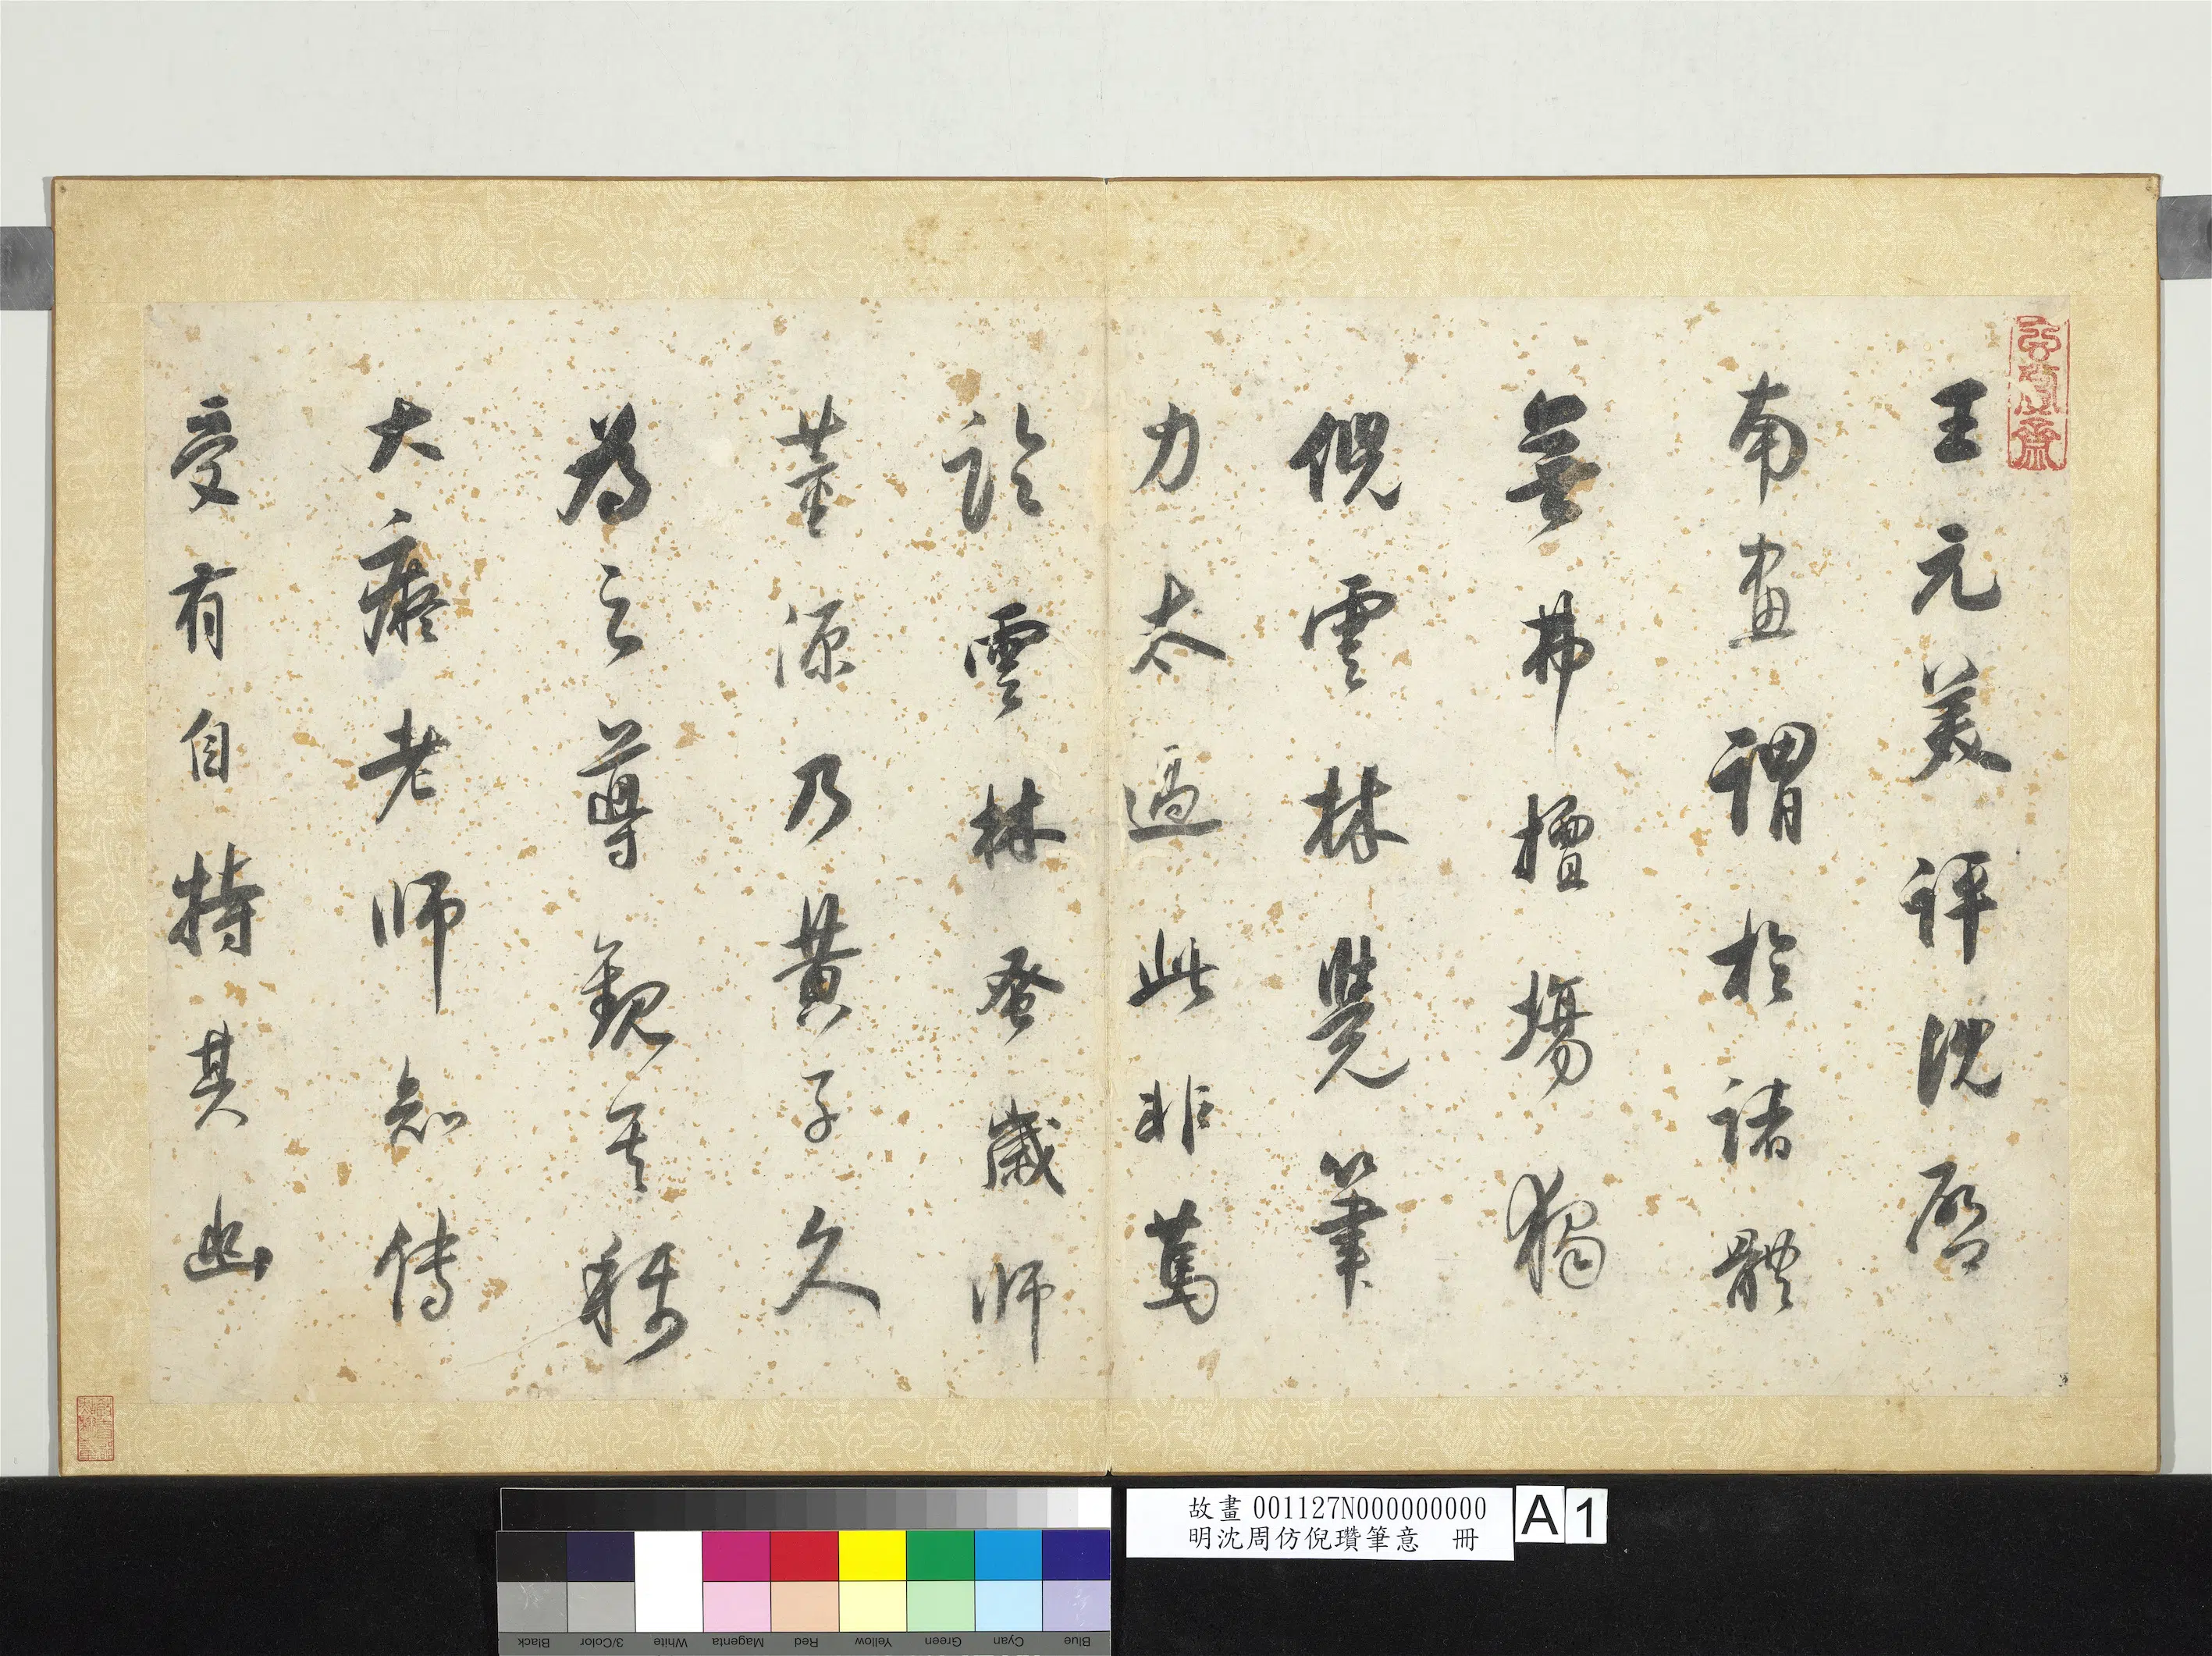 王元美評沈啟
南畫謂於諸體
無弗擅場獨
倪雲林覺筆
力太過此非篤
論雲林蚤歲師
董源乃黃子久
為之尊觀其稱
大癡老師知傳
受有自持其幽
故畫001127N000000000
明沈周仿倪瓚筆意 冊
A 1
Black
3/Color
White
Magenta
Red
Yellow
Green
Cyan
Blue